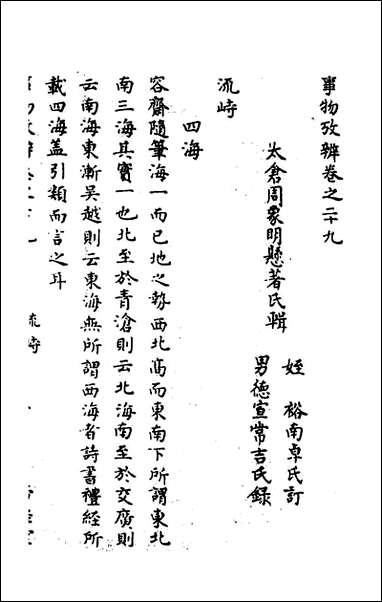 事物攷辨卷之二十九
太倉周象明懸著氏輯
姪 裕南卓氏訂
男德宣常吉氏錄
流峙
四海
容齋隨筆海一而已地之勢西北高而東南下所謂東北
南三海其實一也北至於青滄則云北海南至於交廣則
云南海東漸吳越則云東海無所謂西海者詩書禮經所
載四海盖引類而言之耳
流峙